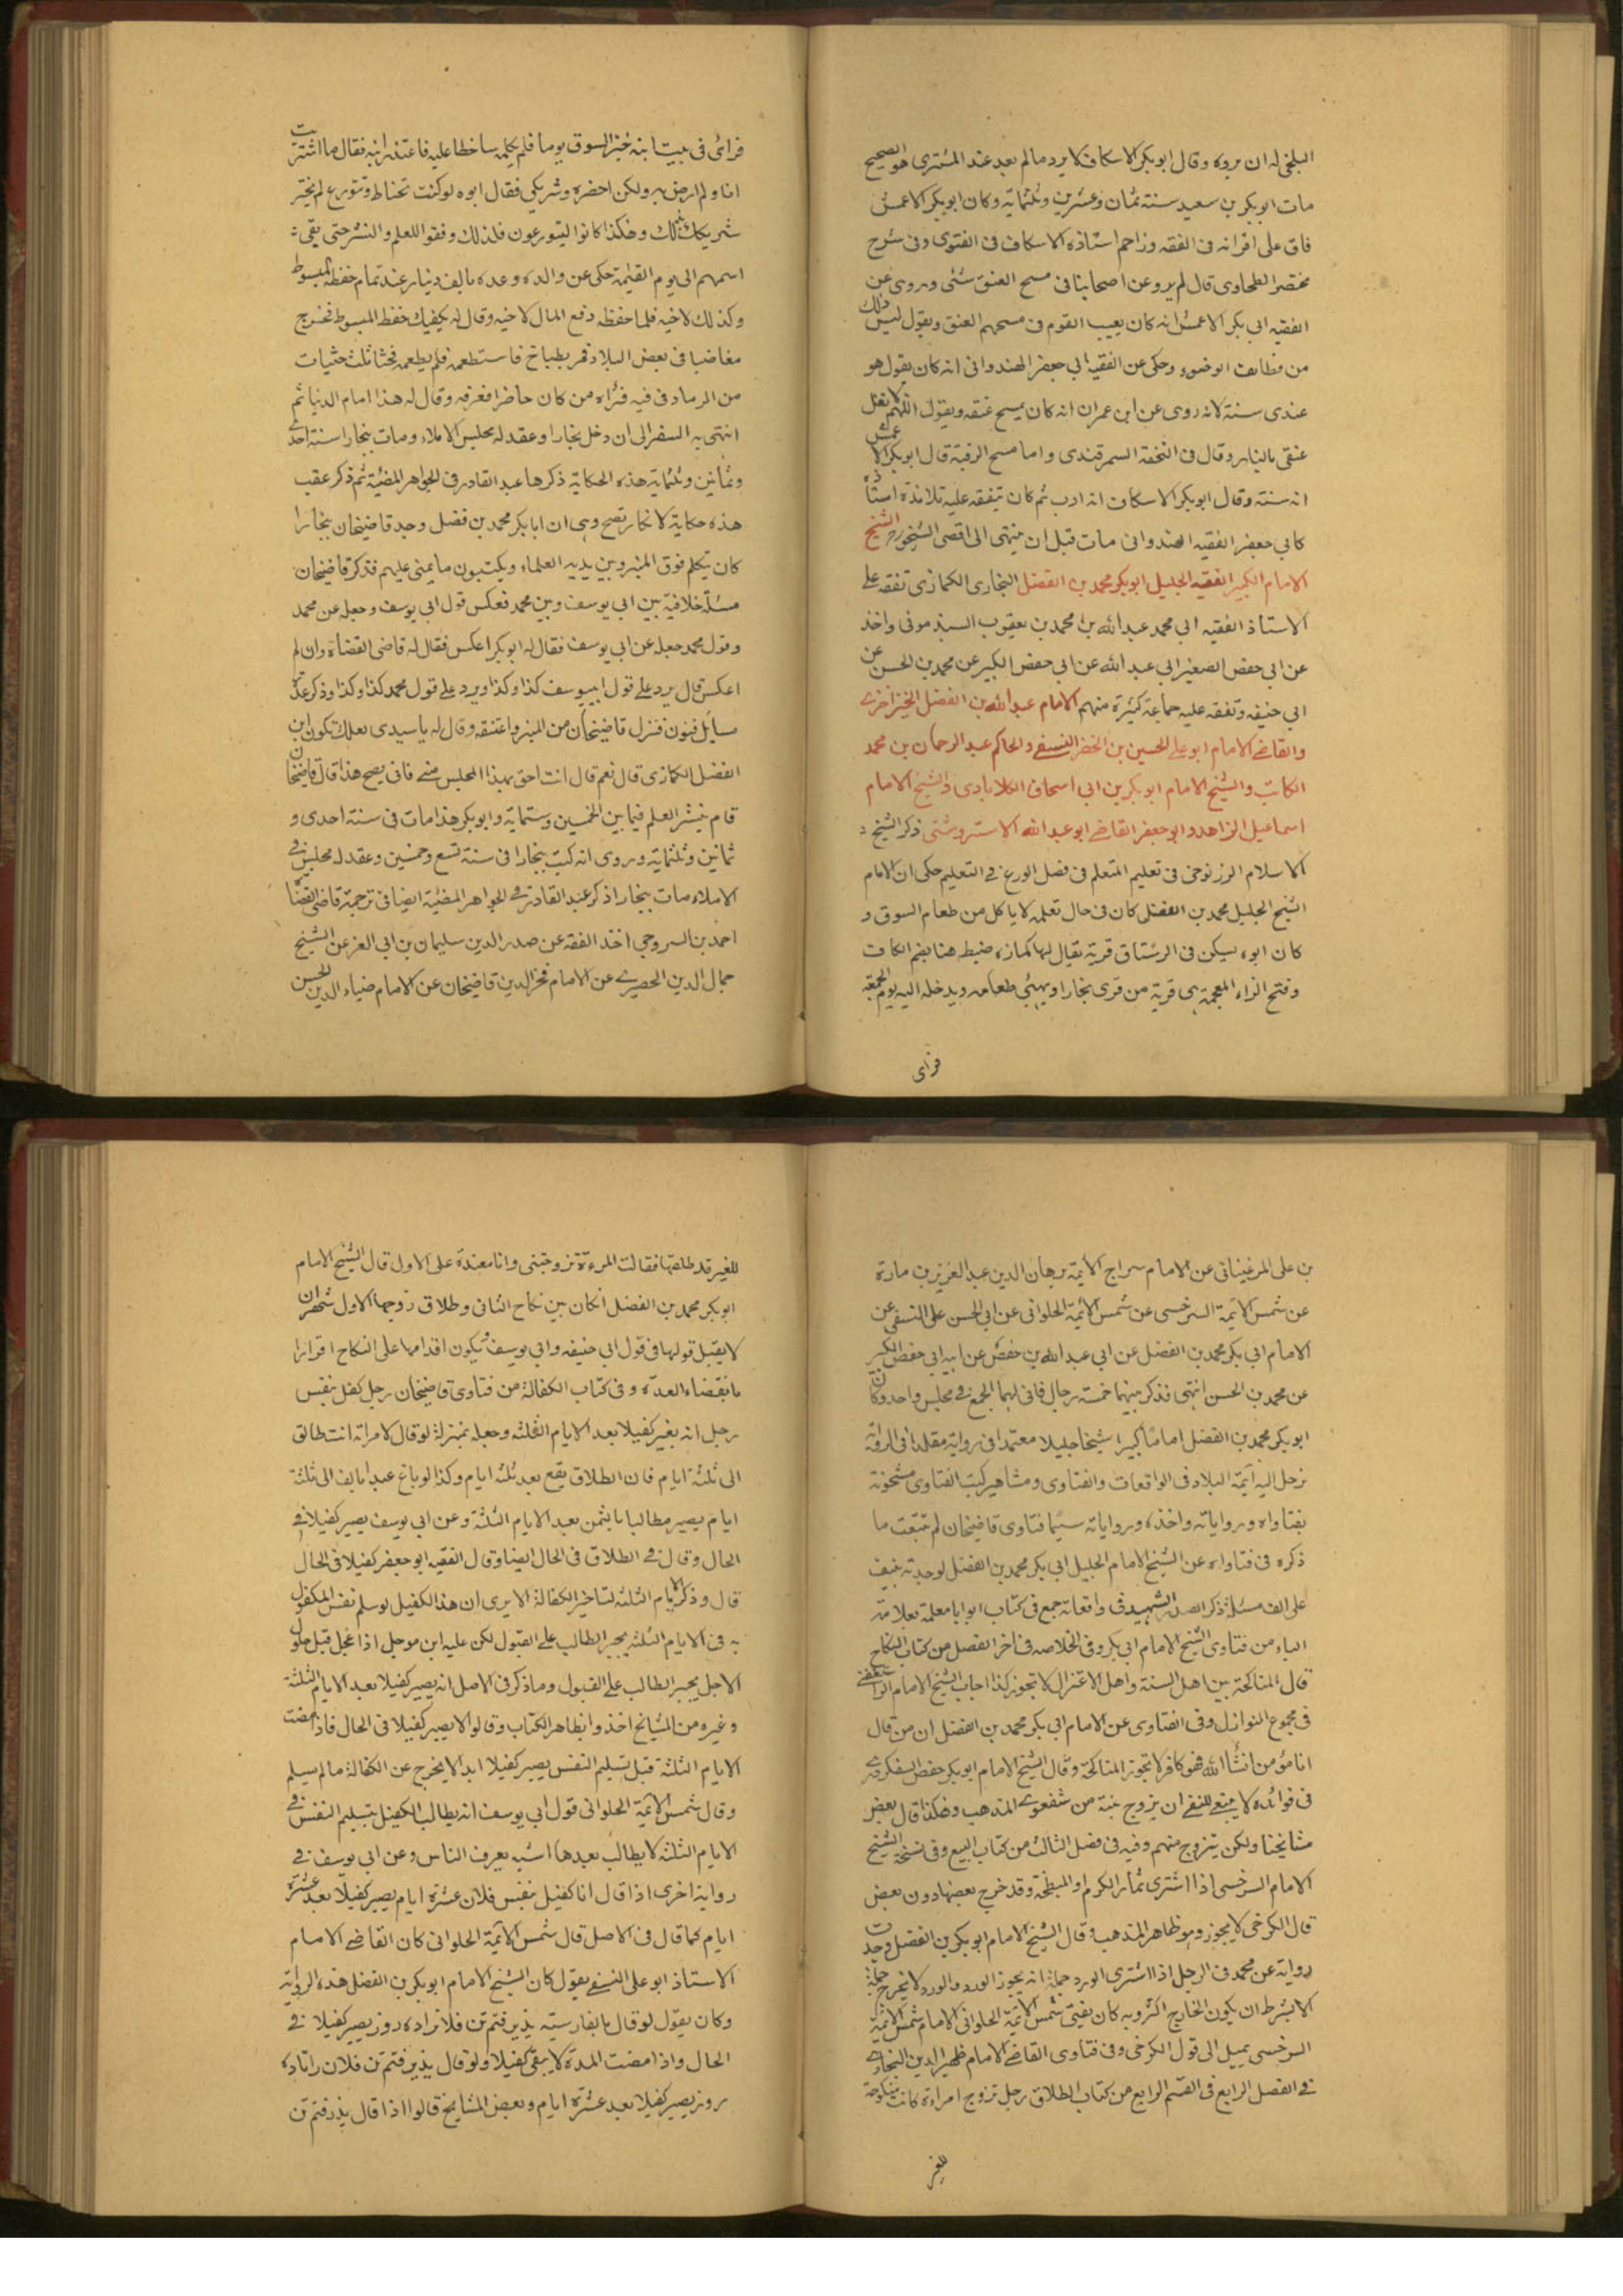 البلخي له ان يرده وقال ابو بكر الاسكاف لا يرد ما لم يعد عند المشتري هو الصحيح
مات ابو بكر بن سعيد سنة ثمان وعشرين وثلثماية وكان ابو بكر الاعمش
فاق على اقرانه في الفقه وزاحم استاذه الاسكاف في الفتوى وفي شرح
مختصر الطحاوي قال لم يرو عن اصحابنا في مسح العنق شئ وروى عن
الفقيه ابي بكر الاعمش انه كان يعيب القوم في مسحهم العنق ويقول ليس ذلك
من وظايف الوضوء وحكى عن الفقيه ابي جعفر الهندواني انه كان يقول هو
عندي سنة لانه روى عن ابن عمر انه كان يمسح عنقه ويقول اللهم لا تغل
عنقي بالنار وقال في التحفة السمرقندي واما مسح الرقبة قال ابو بكر الاعمش
انه سنة وقال ابو بكر الاسكاف انه ادب ثم كان يتفقه عليه تلامذة استاذه
كابي جعفر الفقيه الهندواني مات قبل ان ينتهي الى اقصى الشيخوخة الشيخ
الامام الكبير الفقيه الجليل ابو بكر محمد بن الفضل البخاري الكمازي تفقه على
الاستاذ الفقيه ابي محمد عبد الله بن محمد بن يعقوب السبذموني واخذ
عن ابي حفص الصغير ابي عبد الله عن ابي حفص الكبير عن محمد بن الحسن عن
ابي حنيفه وتفقه عليه جماعة كثيرة منهم الامام عبد الله بن الفضل الخيزاخزي
والقاضي الامام ابو علي الحسين بن الخضر النسفي والحاكم عبد الرحمان بن محمد
الكاتب والشيخ الامام ابو بكر بن ابي اسحاق الكلابادي والشيخ الامام
اسماعيل الزاهد وابو جعفر القاضي ابو عبد الله الاستروشني ذكر الشيخ
الاسلام الزرنوجي في تعليم المتعلم في فصل الورع في التعليم حكى ان الامام
الشيخ الجليل محمد بن الفضل كان في حال تعلمه لا ياكل من طعام السوق و
كان ابوه يسكن في الرستاق قرية يقال لها كماز ضبطه هنا بضم الكاف
وفتح الزاء المعجمة هي قرية من قرى بخارا ويهيئ طعامه ويدخله اليه يوم الجمعة
فراى
فراى في بيت ابنه خبز السوق يوما فلم يكلمه ساخطا عليه فاعتذر ابنه فقال ما اشتريت
انا ولم ارض به ولكن احضره شريكي فقال ابوه لو كنت تحتاط وتتورع لم يجتر
شريكك بذلك وهكذا كانوا يتورعون فلذلك وفقوا للعلم والنشر حتى بقي
اسمهم الى يوم القيمة حكى عن والده وعده بالف دينار عند تمام حفظه المبسوط
وكذلك لاخيه فلما حفظه دفع المال لاخيه وقال له يكفيك حفظ المبسوط فخرج
مغاضبا في بعض البلاد فمر بطباخ فاستطعمه فلم يطعمه فحثا ثلث حثيات
من الرماد في فيه فرآه من كان حاضرا فعرفه وقال له هذا امام الدنيا ثم
انتهى به السفر الى ان دخل بخارا وعقد له مجلس الاملاء ومات ببخارا سنة احدى
وثمانين وثلثماية هذه الحكاية ذكرها عبد القادر في الجواهر المضيئة ثم ذكر عقب
هذه حكاية لا تكاد تصح وهي ان ابا بكر محمد بن فضل وجد قاضيخان ببخارا
كان يتكلم فوق المنبر وبين يديه العلماء ويكتبون ما يملي عليهم فذكر قاضيخان
مسئلة خلافية بين ابي يوسف وبين محمد فعكس قول ابي يوسف وجعله عن محمد
وقول محمد جعله عن ابي يوسف فقال له ابو بكر اعكس فقال له قاضي القضاة وان لم
اعكس قال يرد على قول ابيوسف كذا وكذا ويرد على قول محمد كذا وكذا وذكر عدة
مسايل فنون فنزل قاضيخان من المنبر واعتنقه وقال له يا سيدي لعلك تكون ابن
الفضل الكمازي قال نعم قال انت احق بهذا المجلس مني فاني يصح هذا قال قاضيخان
قام ينشر العلم فيما بين الخمسين وستماية وابو بكر هذا مات في سنة احدى و
ثمانين وثلثماية وروى انه كتب ببخارا في سنة تسع وخمسين وعقد له مجلس في
الاملاء مات ببخارا ذكر عبد القادر في الجواهر المضيئة ايضا في ترجمة قاضي القضاة
احمد بن السروجي اخذ الفقه عن صدر الدين سليمان بن ابي العز عن الشيخ
جمال الدين الحصيري عن الامام فخر الدين قاضيخان عن الامام ضياء الدين الحسين
بن علي المرغيناني عن الامام سراج الايمة برهان الدين عبد العزيز بن مازة
عن شمس الايمة السرخسي عن شمس الايمة الحلواني عن ابي الحسن علي النسفي عن
الامام ابي بكر محمد بن الفضل عن ابي عبد الله بن حفص عن ابيه ابي حفص الكبير
عن محمد بن الحسن انتهى فذكر بينهما خمسة رجال فانى لهما الجمع في مجلس واحد وكان
ابو بكر محمد بن الفضل اماما كبيرا شيخا جليلا معتمدا في رواية مقلدا في الدراية
رحل اليه ايمة البلاد في الواقعات والفتاوى ومشاهير كتب الفتاوى مشحونة
بفتاواه ورواياته واخذه ورواياته سيما فتاوى قاضيخان لم تتبعت ما
ذكره في فتاواه عن الشيخ الامام الجليل ابي بكر محمد بن الفضل لوجدته ينيف
على الف مسئلة ذكر الصدر الشهيد في واقعاته جمع في كتاب ابوابا معلمة بعلامة
الباء من فتاوى الشيخ الامام ابي بكر وفي الخلاصه في اخر الفصل من كتاب النكاح
قال المناكحة بين اهل السنة واهل الاعتزال لا تجوز كذا اجاب الشيخ الامام
في مجموع النوازل وفي الفتاوى عن الامام ابي بكر محمد بن الفضل ان من قال
انا مؤمن انشاالله فهو كافر لا تجوز المناكحة وقال الشيخ الامام ابو بكر حفص السفكردري
في فوائده لا ينبغي للحنفي ان يزوج بنته من شفعوي المذهب وهكذا قال بعض
مشايخنا ولكن يتزوج منهم وفيه في فصل الثالث من كتاب البيع وفي نسخة الشيخ
الامام السرخسي اذا اشترى ثمار الكرم او المبطخة وقد خرج بعضها دون بعض
قال الكرخي لا يجوز وهو ظاهر المذهب وقال الشيخ الامام ابو بكر بن الفضل وجدت
رواية عن محمد في الرجل اذا اشترى الورد جملة انه يجوز الورد والورد لا يخرج جملة
الا بشرط ان يكون الخارج اكثر وبه كان يفتي شمس الايمة الحلواني الامام شمس الايمة
السرخسي يميل الى قول الكرخي وفي فتاوى القاضي الامام ظهير الدين البخاري
في الفصل الرابع في القسم الرابع من كتاب الطلاق رجل تزوج امراءة كانت منكوحة
للغير
للغير قد طلقها فقالت المرءة تزوجتني وانا معتدة على الاول قال الشيخ الامام
ابو بكر محمد بن الفضل ان كان بين نكاح الثاني وطلاق زوجها الاول شهران
لا يقبل قولها في قول ابي حنيفه وابي يوسف ويكون اقدامها على النكاح اقرارا
بانقضاء العدة وفي كتاب الكفالة من فتاوى قاضيخان رجل كفل بنفس
رجل انه يغير كفيلا بعد الايام الثلثه وجعله بمنزلة لو قال لامراته انت طالق
الى ثلثة ايام فان الطلاق يقع بعد ثلثه ايام وكذا لو باع عبدا بالف الى ثلثة
ايام يصير مطالبا بالثمن بعد الايام الثلثة وعن ابي يوسف يصير كفيلا في
الحال وقال في الطلاق في الحال ايضا وقال الفقيه ابو جعفر كفيلا في الحال
قال وذكر الايام الثلثه لتاخير الكفالة الا يرى ان هذا الكفيل لو سلم نفس المكفول
به في الايام الثلثه يجبر الطالب على القبول لكن عليه دين موجل اذا عجل قبل حلول
الاجل يجبر الطالب على القبول وما ذكر في الاصل انه يصير كفيلا بعد الايام الثلثة
وغيره من المشايخ اخذوا بظاهر الكتاب وقالوا لا يصير كفيلا في الحال فاذا مضت
الايام الثلثة قبل تسليم النفس يصير كفيلا ابدا لا يخرج عن الكفالة ما لم يسلم
وقال شمس الايمة الحلواني قول ابي يوسف انه يطالب الكفيل بتسليم النفس في
الايام الثلثه لا يطالب بعدها اشبه بعرف الناس وعن ابي يوسف في
رواية اخرى اذا قال انا كفيل بنفس فلان عشرة ايام يصير كفيلا بعد عشرة
ايام كما قال في الاصل قال شمس الايمة الحلواني كان القاضي الامام
الاستاذ ابو علي النسفي يقول كان الشيخ الامام ابو بكر بن الفضل هذه الرواية
وكان يقول لو قال بالفارسية پذيرفتم تن فلانرا ده روز يصير كفيلا في
الحال واذا مضت المدة لا يبقى كفيلا ولو قال پذيرفتم تن فلان را تا ده
روز يصير كفيلا بعد عشرة ايام وبعض المشايخ قالوا اذا قال پذيرفتم تن